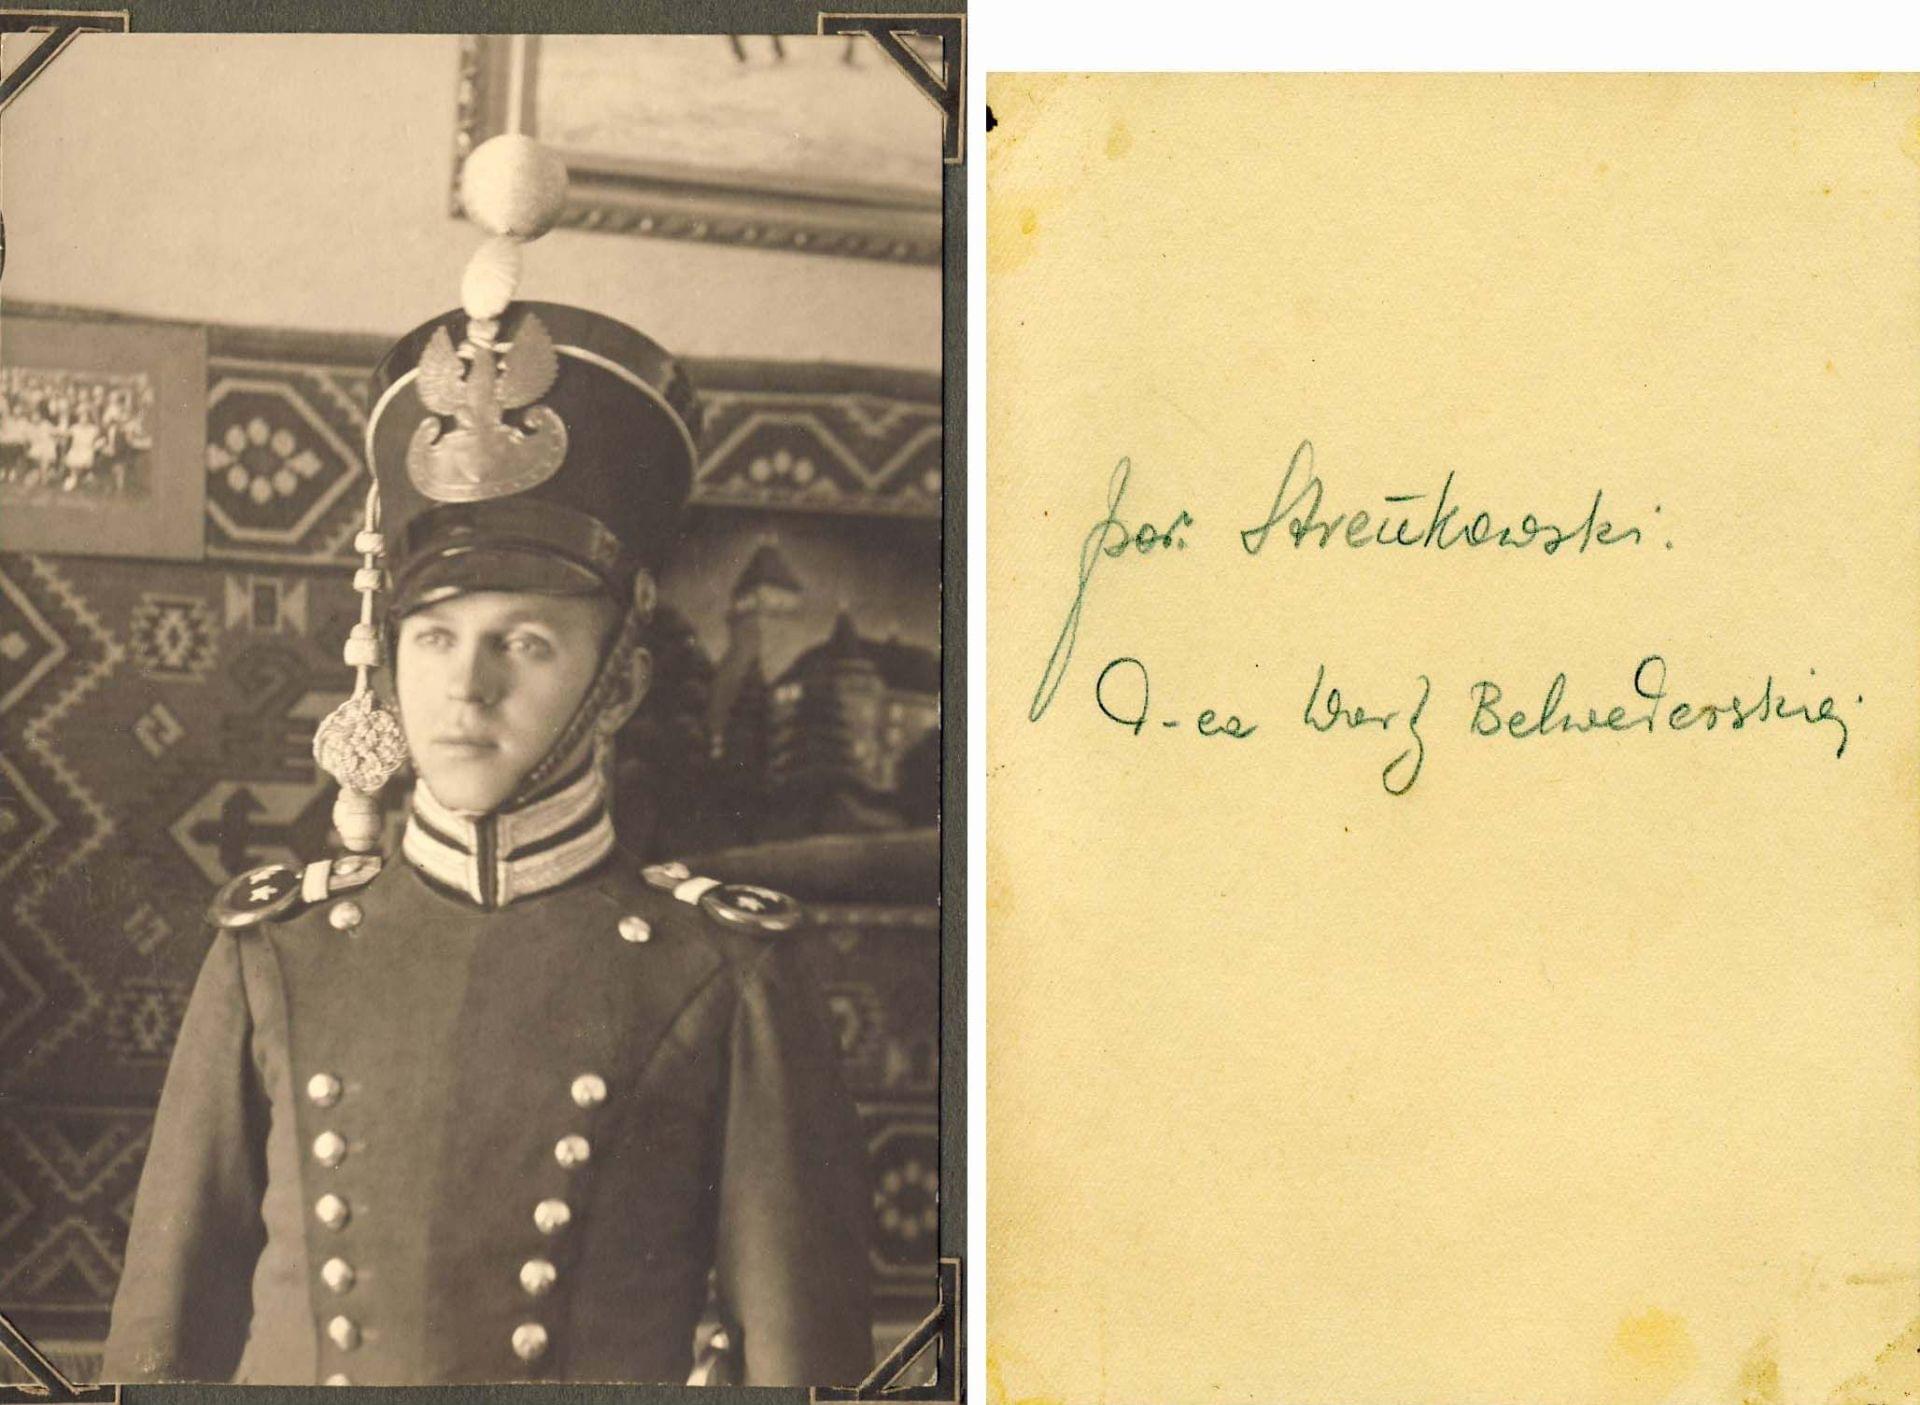 por. Streńkowski.
D-ca Warty Belwederskiej